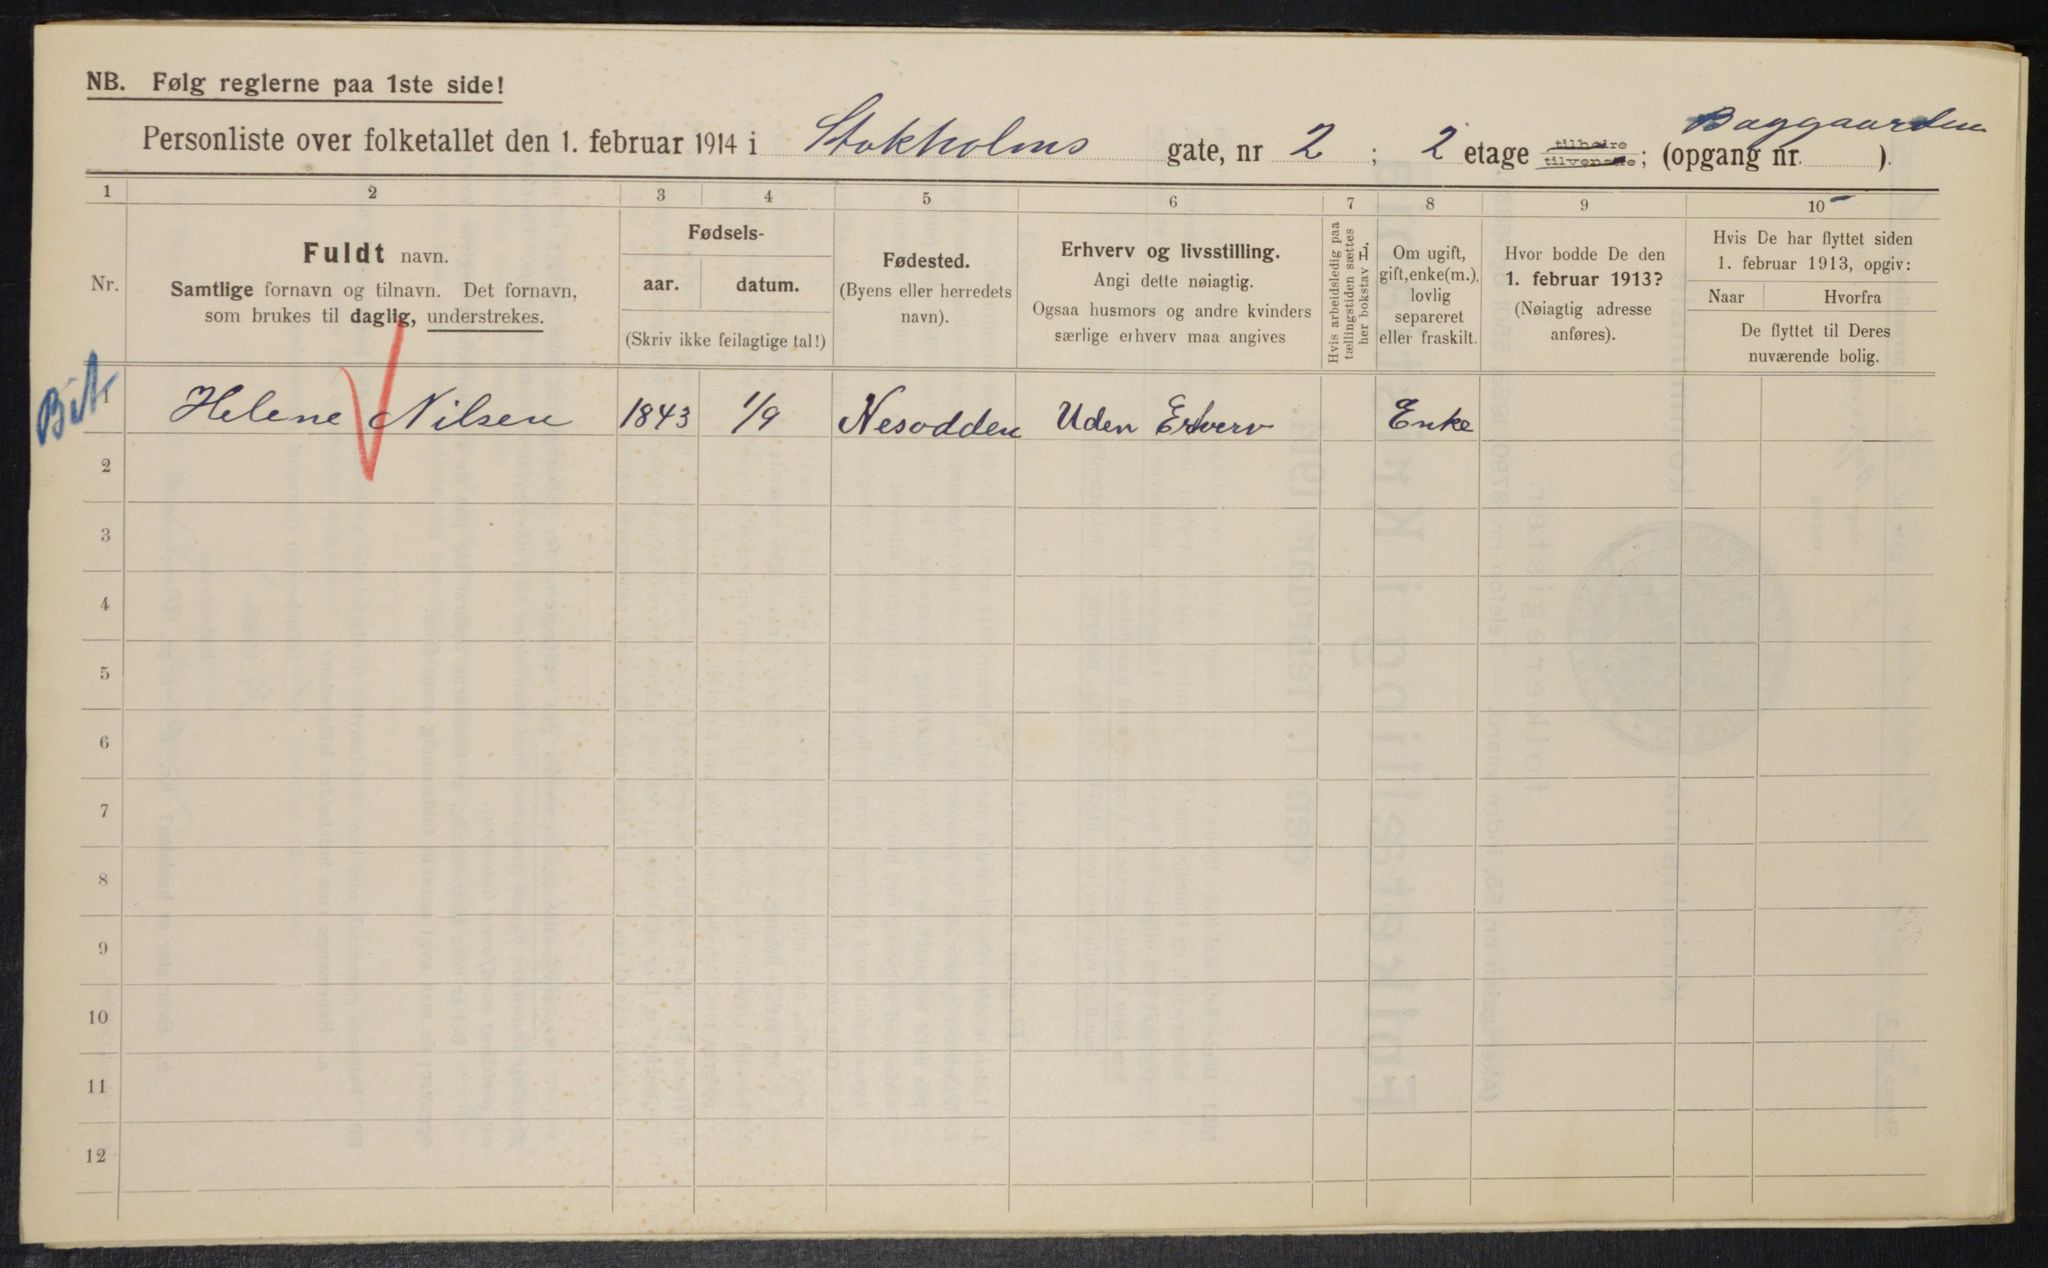 NB. Følg reglerne paa 1ste side!
Baggaarden
Personliste over folketallet den 1. februar 1914 i Stokholms gate, nr 2; 2 etage tilhøire tilvenstre; (opgang nr. ).
1 2 3 4 5 6 7 8 9 10
Nr.
Fuldt navn.
Samtlige fornavn og tilnavn. Det fornavn,
som brukes til daglig, understrekes.
Fødsels-
aar. datum.
(Skriv ikke feilagtige tal!)
Fødested.
(Byens eller herredets
navn).
Erhverv og livsstilling.
Angi dette nøiagtig.
Ogsaa husmors og andre kvinders
særlige erhverv maa angives
Hvis arbeidsledig paa
tællingstiden sættes
her bokstav L.
Om ugift,
gift, enke(m.).
lovlig
separeret
eller fraskilt.
Hvor bodde De den
1. februar 1913?
(Nøiagtig adresse
anføres).
Hvis De har flyttet siden
1. februar 1913, opgiv:
Naar Hvorfra
De flyttet til Deres
nuværende bolig.
1 Helene Nilsen 1843 1/9 Nesodden Uden Erhverv Enke
2
3
4
5
6
7
8
9
10
11
12